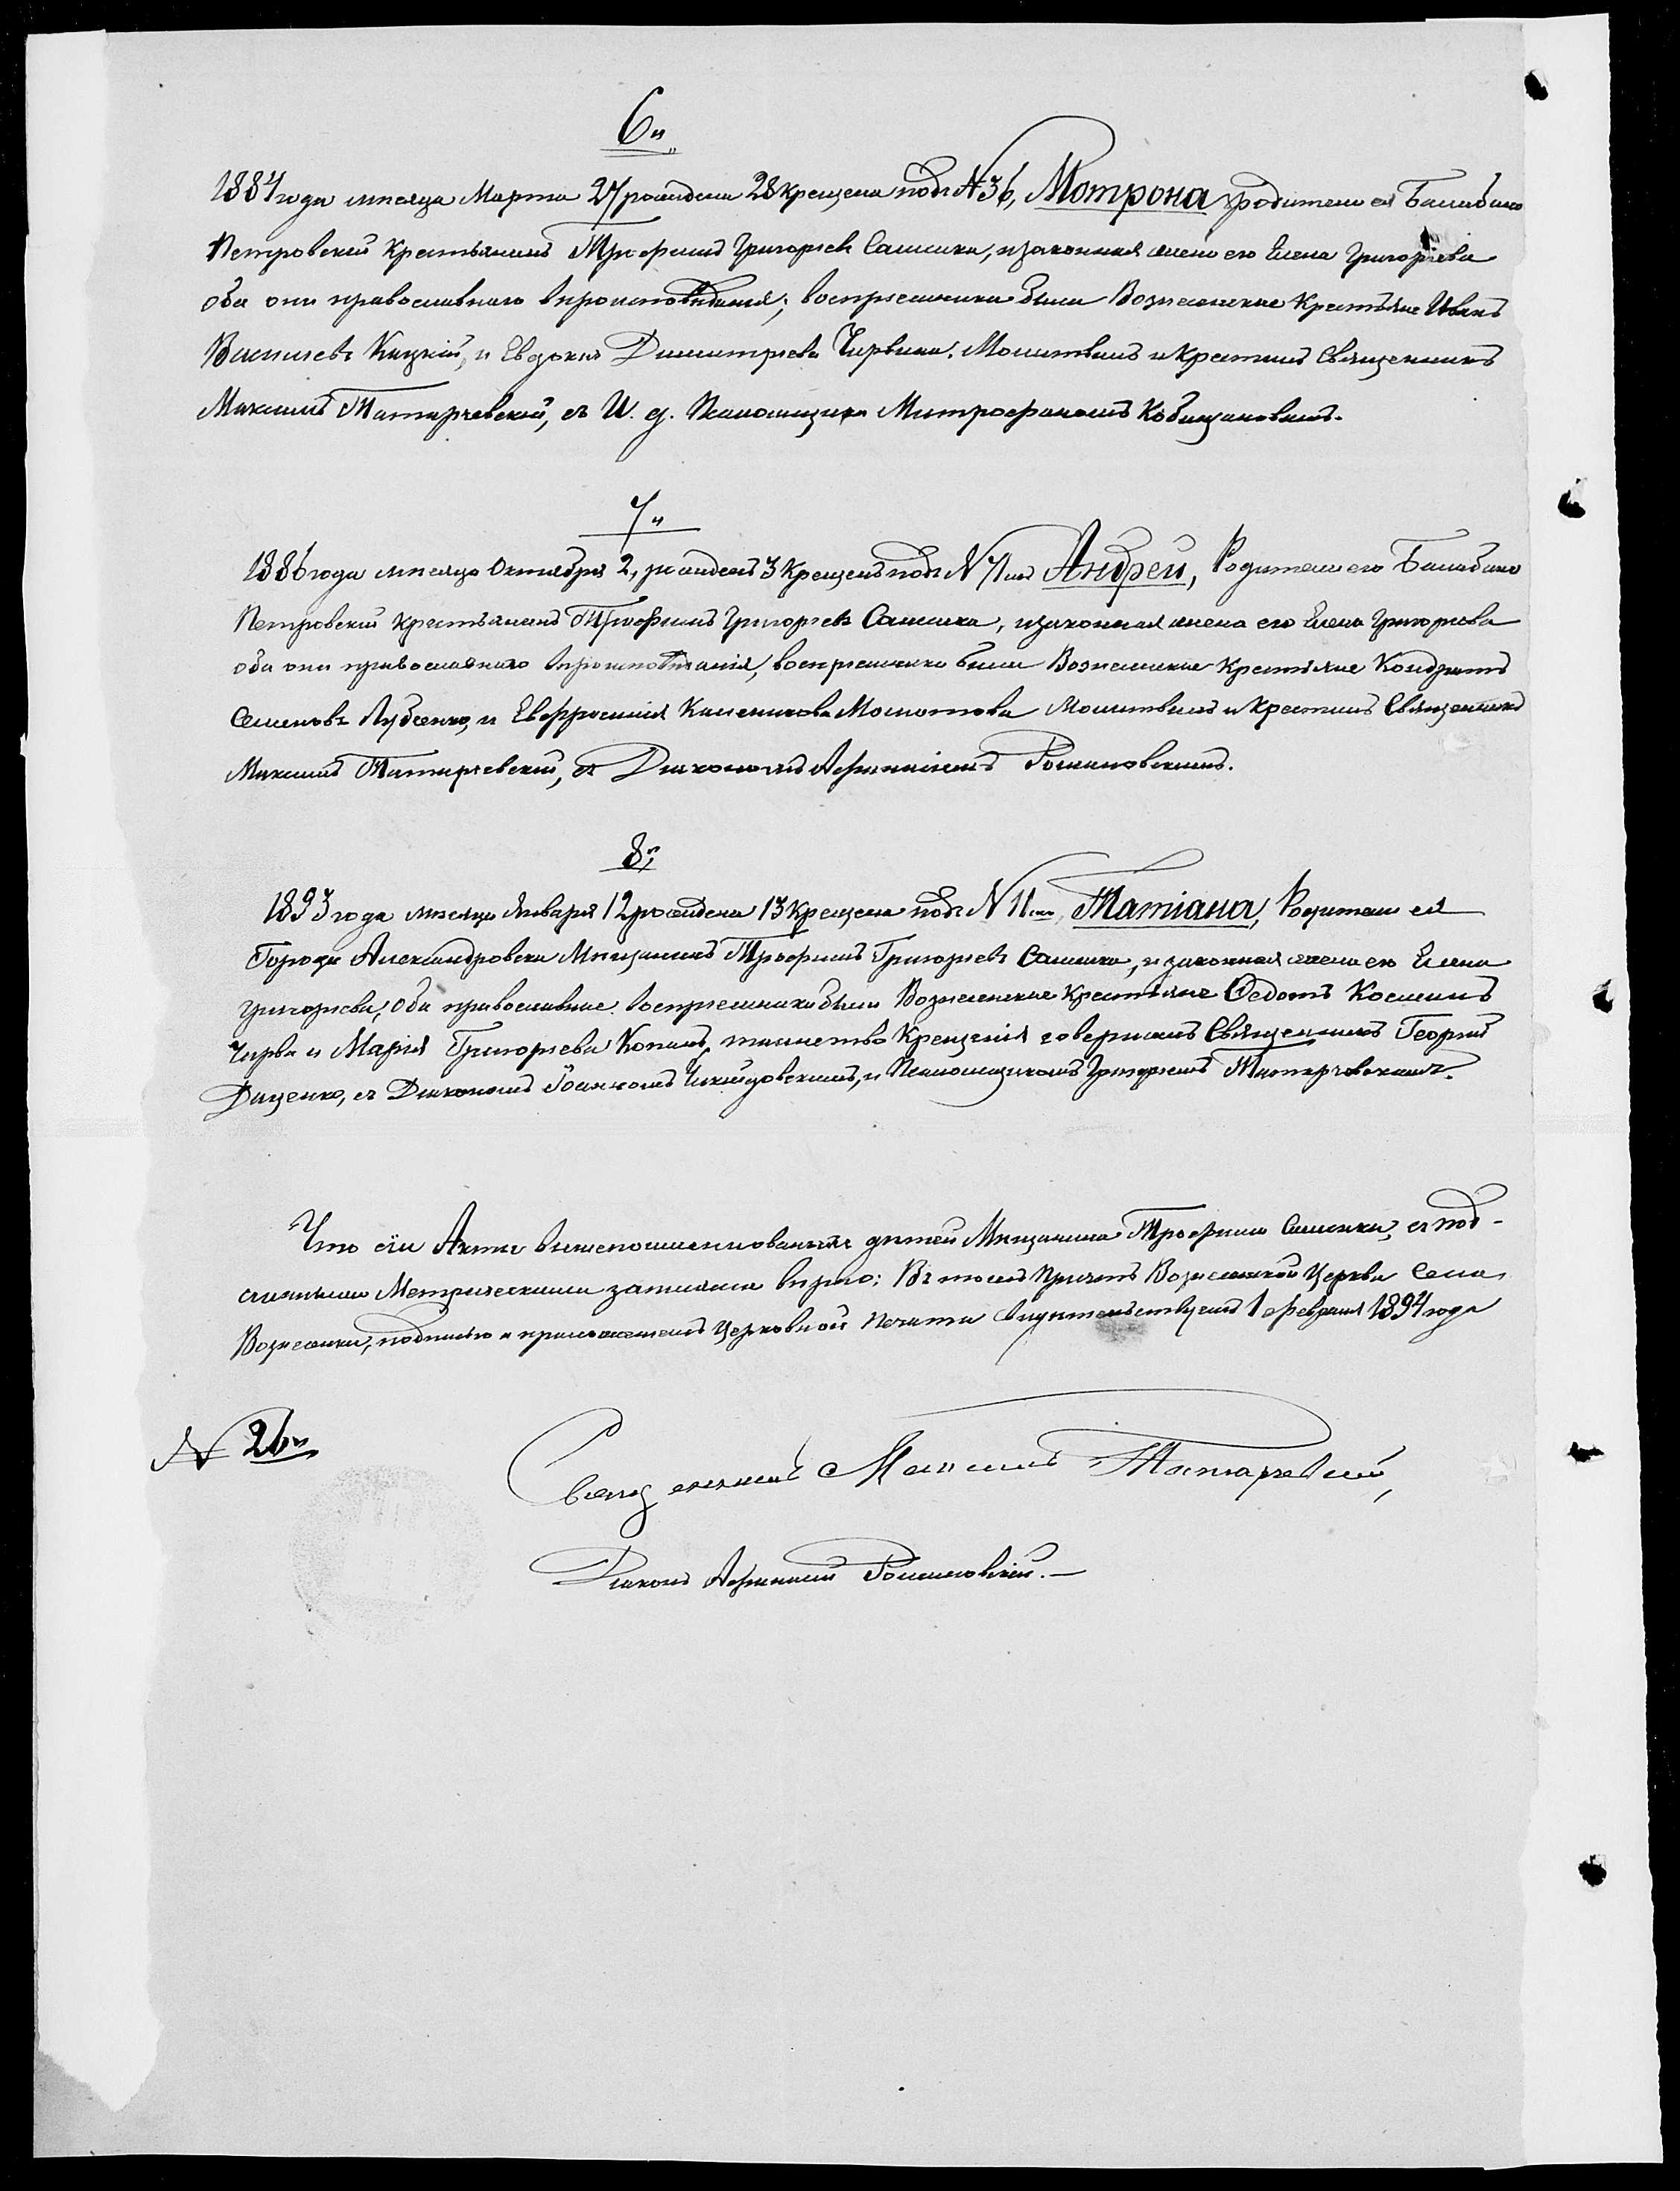 6"
1884 года месяца Марта 27 рождена 28 крещена подъ № 36, Мотрона родители ея Балабино
Петровскій крестьянинъ Трофимъ Григорьевъ Сашика, и законная жена его Елена Григоріева
оба они православнаго вѣроисповѣданія; воспріемники были Вознесенские Крестьяне Иванъ
Васильевъ Куцкій, и Евдокія Димитріева Чирвина. Молитвилъ и крестилъ Священникъ
Максимъ Татарчевскій, съ И. д. Псаломщика Митрофаномъ Кобищановымъ.
7"
1886 года месяца Октября 2, рожденъ 3 Крещенъ подъ № 71мъ Андрей, Родители его Балабино
Петровскій крестьянинъ Трофимъ Григорьевъ Сашика, и законная жена его Елена Григорьева
оба они православнаго вѣроисповѣданія, воспріемники были Вознесенские Крестьяне Кондратъ
Семеновъ Лубенко, и Евфросинія Молотова Молитвилъ и Крестилъ Священникъ
Максимъ Татарчевскій, съ Діакономъ Афанасіемъ Романовскимъ.
8"
1893 года месяца Января 12 рождена 13 Крещена подъ № 11мъ Татіана, Родители ея
Города Александровска Мѣщанинъ Трофимъ Григорьевъ Сашика, и законная жена его Елена
Григорьева, Оба православные. Воспріемники были Вознесенские Крестьяне Ѳедотъ Косминъ
Чирва и Марія Григорьева Копанъ, таинство Крещенія совершилъ Священникъ Георгій
Даценко, съ Діакономъ Іоанномъ и Псаломщикомъ Григоріемъ Татарчевскимъ.
Что сіи Акты вышепоименованныхъ дѣтей Мѣщанина Трофима Сашики, съ под-
линными Метрическими записями вѣрно: Въ томъ Причтъ Вознесенской Церкви Села
Вознесенки, подписью и приложеніемъ Церковной печати свидѣтельствуетъ 1 февраля 1894 года
№ 26й
Священникъ Максимъ Татарчевскій,
Діаконъ Афанасій Романовскій.